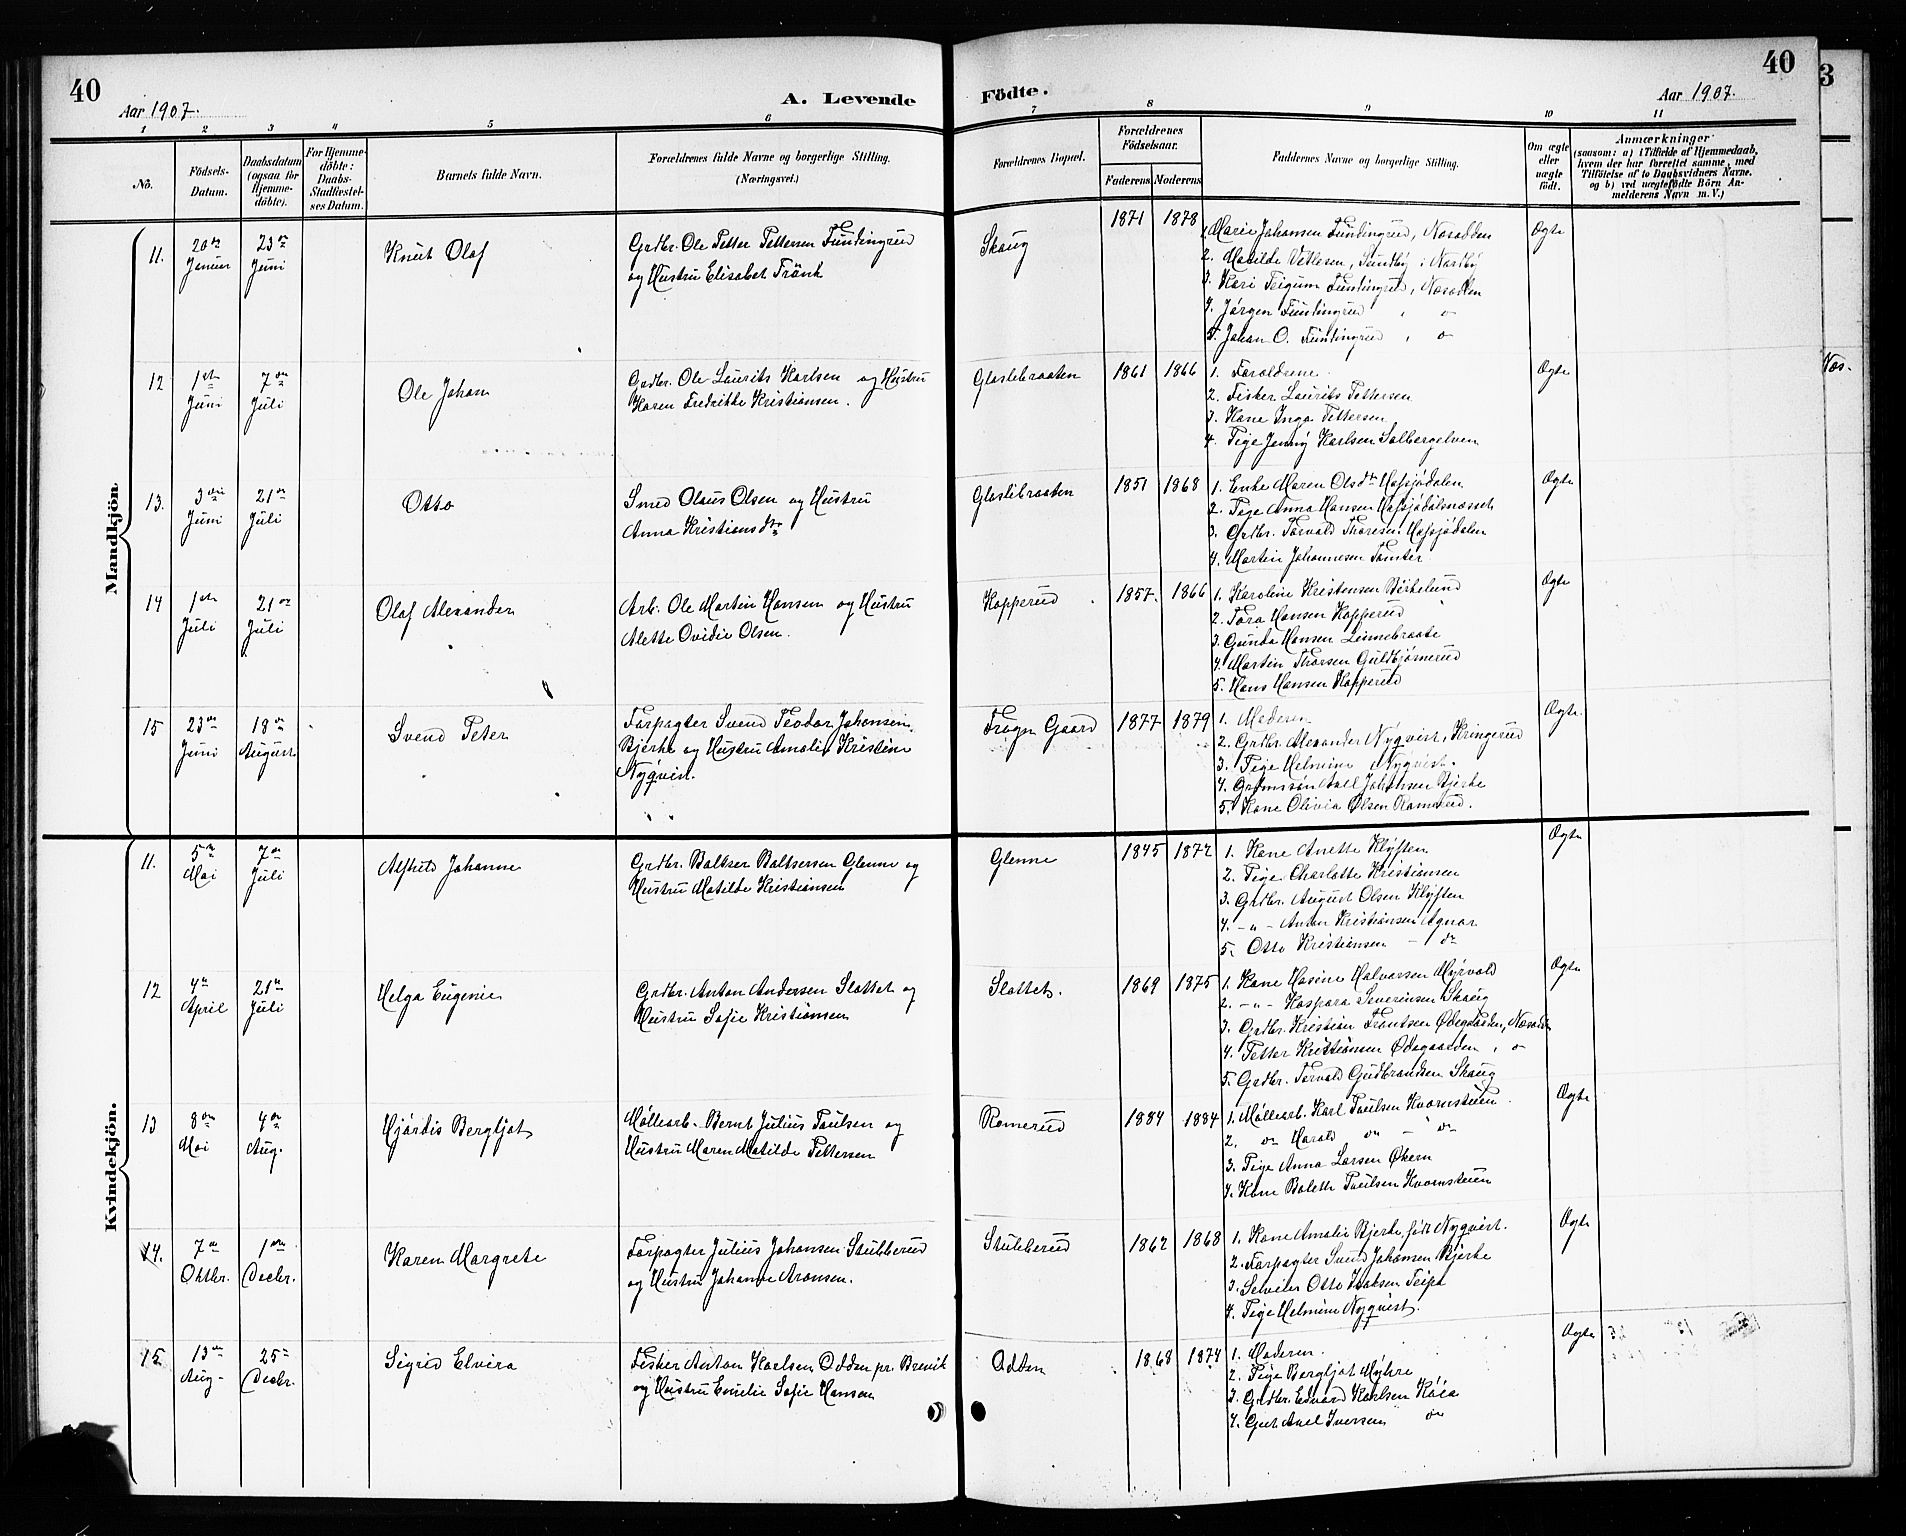 40
Aar 1907.
A. Levende
Födte.
40
Aar 1907.
3
1 2 3 4 5 6 7 8 9 10 11
No.
Födsels-
Datum.
Daabsdatum
(ogsaa for
Hjemme-
döbte).
For Hjemme-
döbte:
Daabs-
Stadfæstel-
ses Datum.
Barnets fulde Navn.
Forældrenes fulde Navne og borgerlige Stilling.
(Næringsvei.)
Forældrenes Bopæl.
Forældrenes
Födselsaar.
Faderens
Moderens
Faddernes Navne og borgerlige Stilling.
Om ægte
eller
uægte
födt.
Anmærkninger
(saasom: a) i Tilfælde af Hjemmedaab,
hvem der har forrettet samme, med
Tilföielse af to Daabsvidners Navne.
og b) ved uægtefödte Börn An-
melderens Navn m.V.)
Mandkjön
11.
20de
Januar
23de
Juni
Knut Olaf
Grdbr. Ole Petter Pettersen Fundingrud
og Hustru Elisabet Frönt
Skaug
1871
1878
1. Marie Johansen Fundingrud, Næsodden
2. Matilde Vetlesen, Sundby i Nordby
3. Kari Teigum Fundingrud, Næsodden
4. Jørgen Fundingrud " o
5. Johan O. Fundingrud " o
Ægte
12
1ste
Juni
7de
Juli
Ole Johan
Grdbr. Ole Laurits Karlsen og Hustru
Karen Fredrikke Kristiansen.
Glaslibraaten
1861
1866
1. Forældrene.
2. Fisker Laurits Pettersen
3. Kone Inga Pettersen
4. Pige Jenny Karlsen Solbergelven
Ægte
13.
3die
Juni
21de
Juli
Otto
Smed Olaus Olsen og Hustru
Anna Kristiansdtr
Glaslibraaten
1851
1868
1. Enke Maren Olsdtr Hafsjødalen
2. Pige Anna Hansen Hafsjødalnæsset
3. Grdbr. Torvald Thoresen Hafsjødalen
4. Martin Johannesen Tomter
Ægte
14
1ste
Juli
21de
Juli
Olaf Alexander
Arb. Ole Martin Hansen og Hustru
Alette Ovidie Olsen.
Kopperud
1857.
1866
1. Karoline Kristensen Birkelund
2. Tora Hansen Kopperud
3. Gunda Hansen Linnebraate
4. Martin Thorsen Guldbjørnerud
5. Hans Hansen Kopperud
Ægte
15
23de
Juni
18de
August
Svend Peter
Forpagter Svend Teodor Johansen
Bjerke og Hustru Amalie Kristine
Nyqvist.
Frogn Gaard
1877
1879
1. Moderen
2. Grdbr. Alexander Nyqvist, Kringerud
3. Pige Helmine Nyqvist.
4. Grdmssøn Axel Johansen Bjerke
5. Kone Olivia Olsen Romerud.
Ægte
Kvindekjön.
11.
5te
Mai
7de
Juli
Alfhild Johanne
Grdbr. Baltser Baltsersen Glenne og
Hustru Matilde Kristiansen
Glenne
1845
1872
1. Kone Anette Kløften
2. Pige Charlotte Kristiansen
3. Grdbr. August Olsen Kløften
4. - " - Anton Kristiansen Agnor
5. Otto Kristiansen - do
Ægte
12
4de
April
21de
Juli
Helga Eugenie
Grdbr. Anton Andersen Slottet og
Hustru Sofie Kristiansen
Slottet.
1869
1875
1. Kone Hasine Halvorsen Myrvold
2. - " - Kaspara Severinsen Skaug
3. Grdbr. Kristian Frantsen Ødegaarden, Næsodden
4. Petter Kristiansen Ødegaarden, o
5. Grdbr. Torvald Gudbrandsen Skaug
Ægte
13
8de
Mai
4de
Aug.
Hjørdis Bergljot
Møllearb. Bernt Julius Paulsen og
Hustru Maren Matilde Pettersen
Romerud
1884
1884
1. Møllearb. Karl Paulsen Kvornstuen
2. do Harald do - do
3. Pige Anna Larsen Økern
4. Kone Bolette Paulsen Kvornstuen
Ægte
14.
7de
Oktbr.
1ste
Decbr.
Karen Margrete
Forpagter Julius Johansen Stubberud
og Hustru Johanne Aronsen.
Stubberud
1862
1868
1. Kone Amalie Bjerke, født Nyqvist.
2. Forpagter Svend Johansen Bjerke
3. Selveier Otto Isaksen Teipe
4. Pige Helmine Nyqvist.
Ægte
15
13de
Aug.
25de
Decbr.
Sigrid Elvira
Fisker Anton Karlsen Odden pr. Brevik
og Hustru Emilie Sofie Hansen
Odden
1868
1874
1. Moderen.
2. Pige Bergljot Myhre
3. Grdbr. Edvard Karlsen Kaia
4. Gut Axel Iversen do
Ægte
Næs-